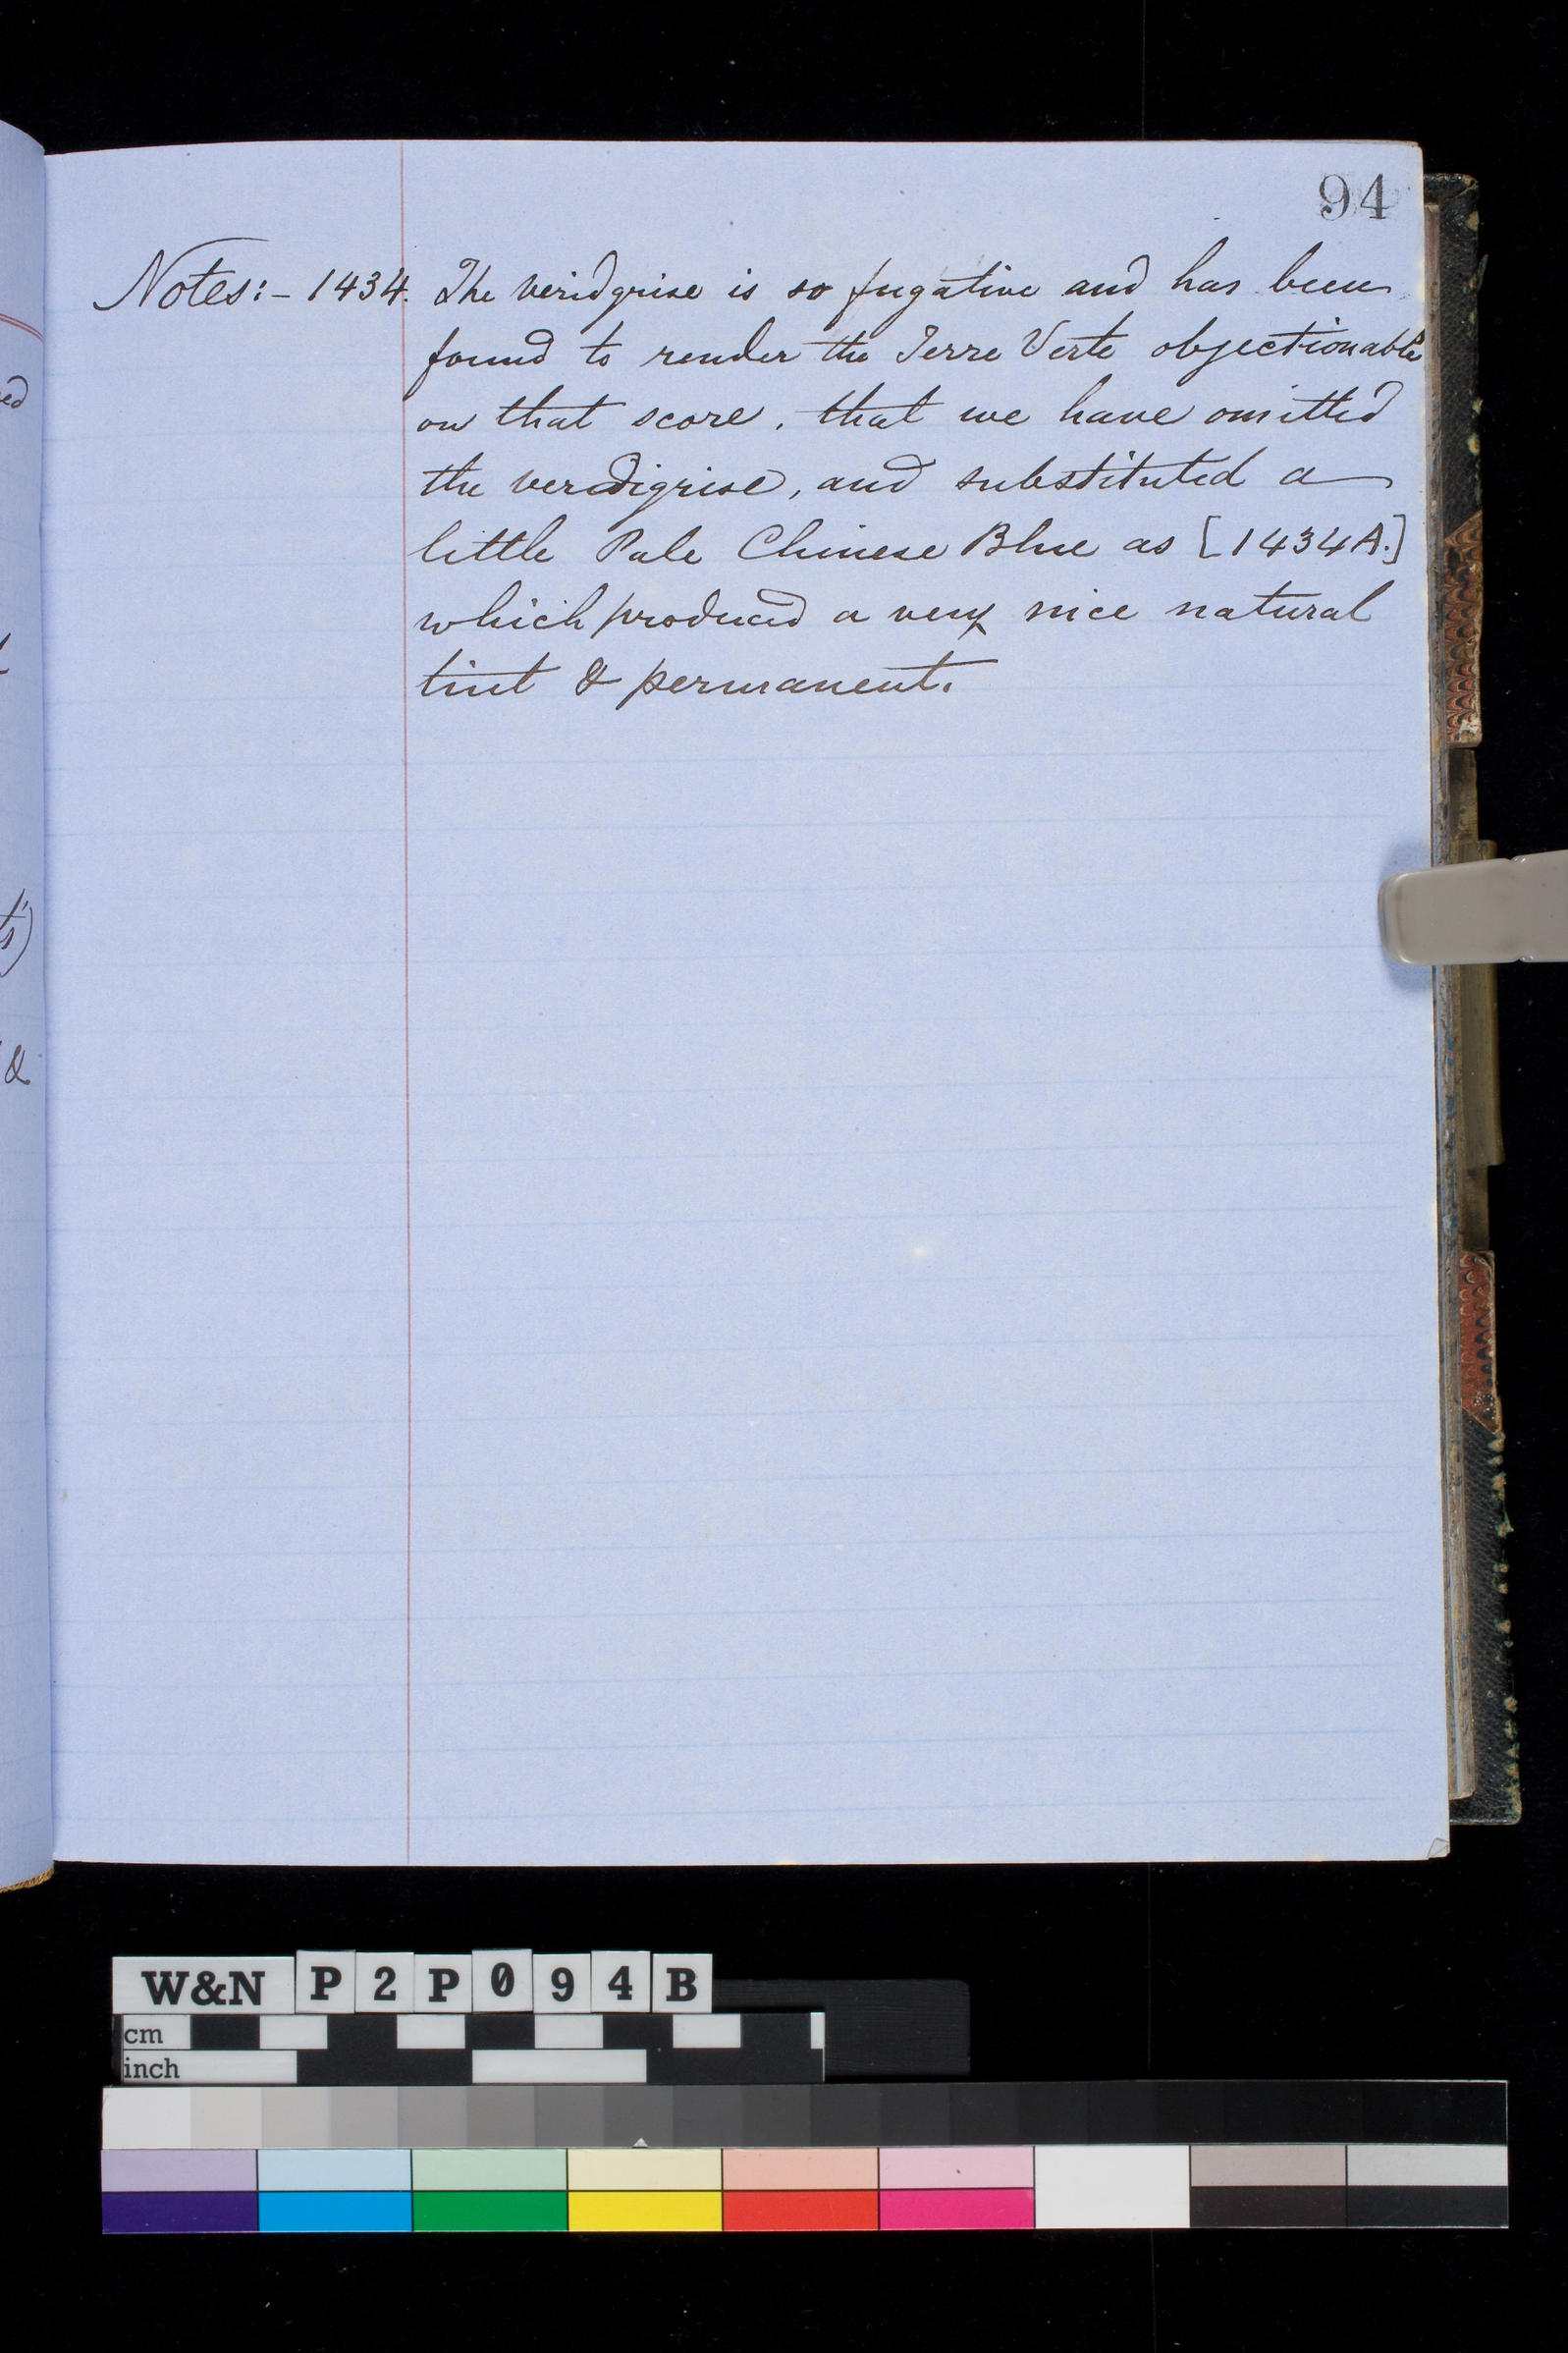 94
Notes:- 1434. The veridgrise is so fugative and has been
found to render the Terre Verte objectionable
on that score, that we have omitted
the verdigrise, and substituted a
little Pale Chinese Blue as [1434A.]
which produced a very nice natural
tint & permanent.
ed
ts)
&
W&N P2P094B
cm
inch